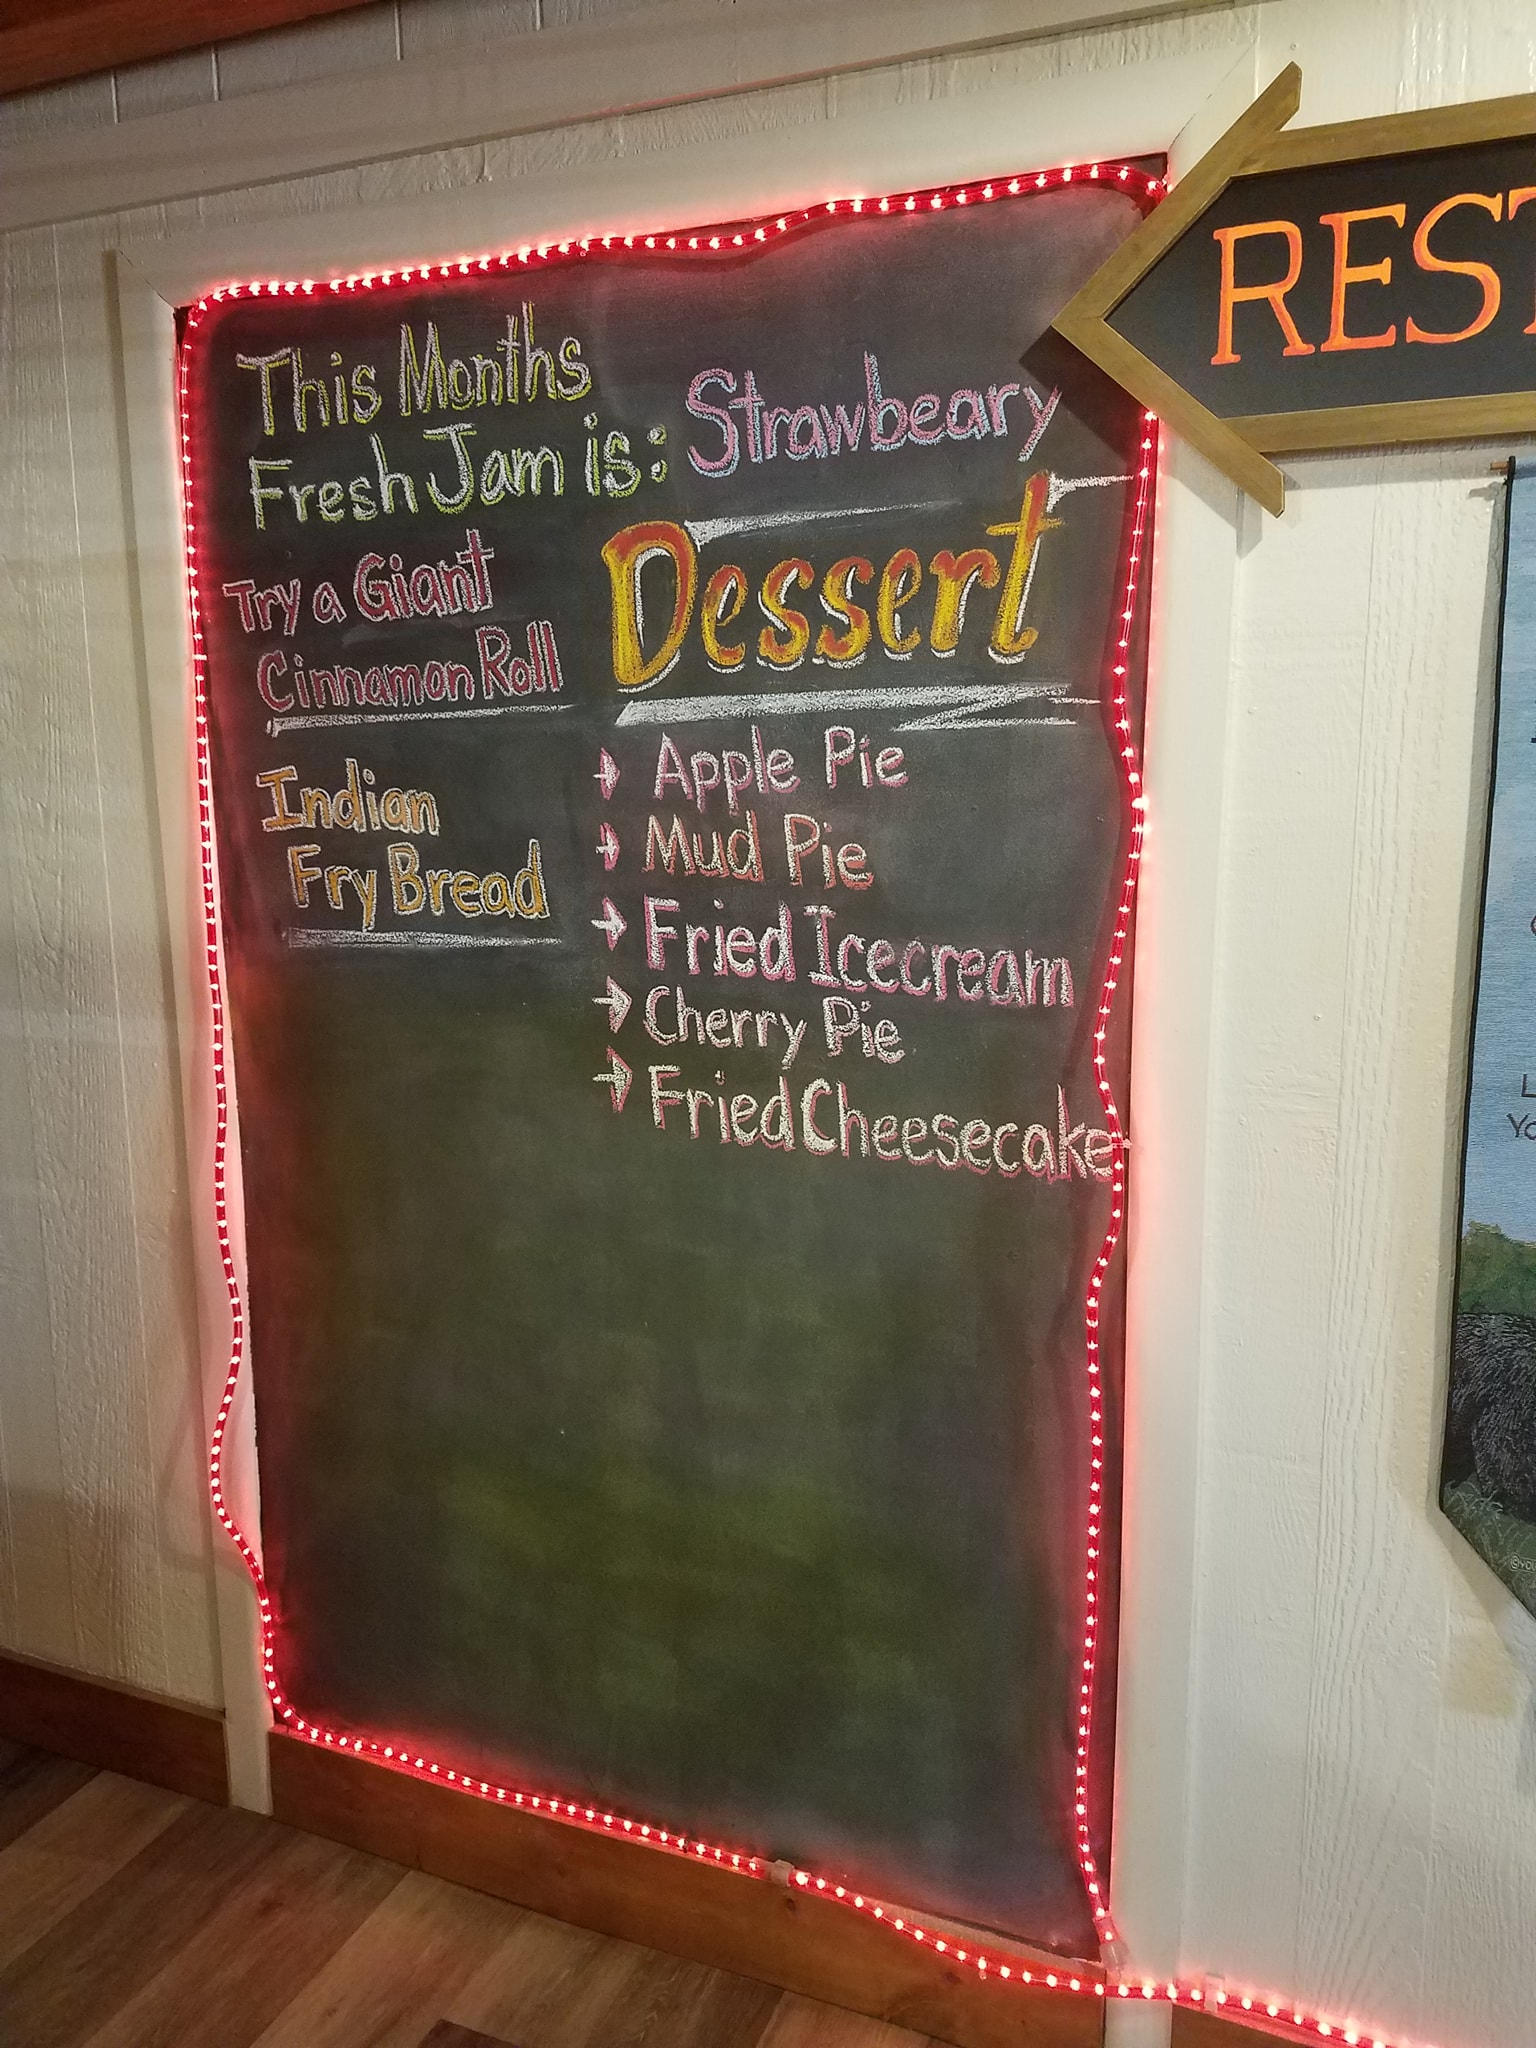 This Months
Fresh Jam is: Strawbeary
Try a Giant
Cinnamon Roll
Indian
Fry Bread
Dessert
→ Apple Pie
→ Mud Pie
→ Fried Icecream
→ Cherry Pie
→ Fried Cheesecake
REST